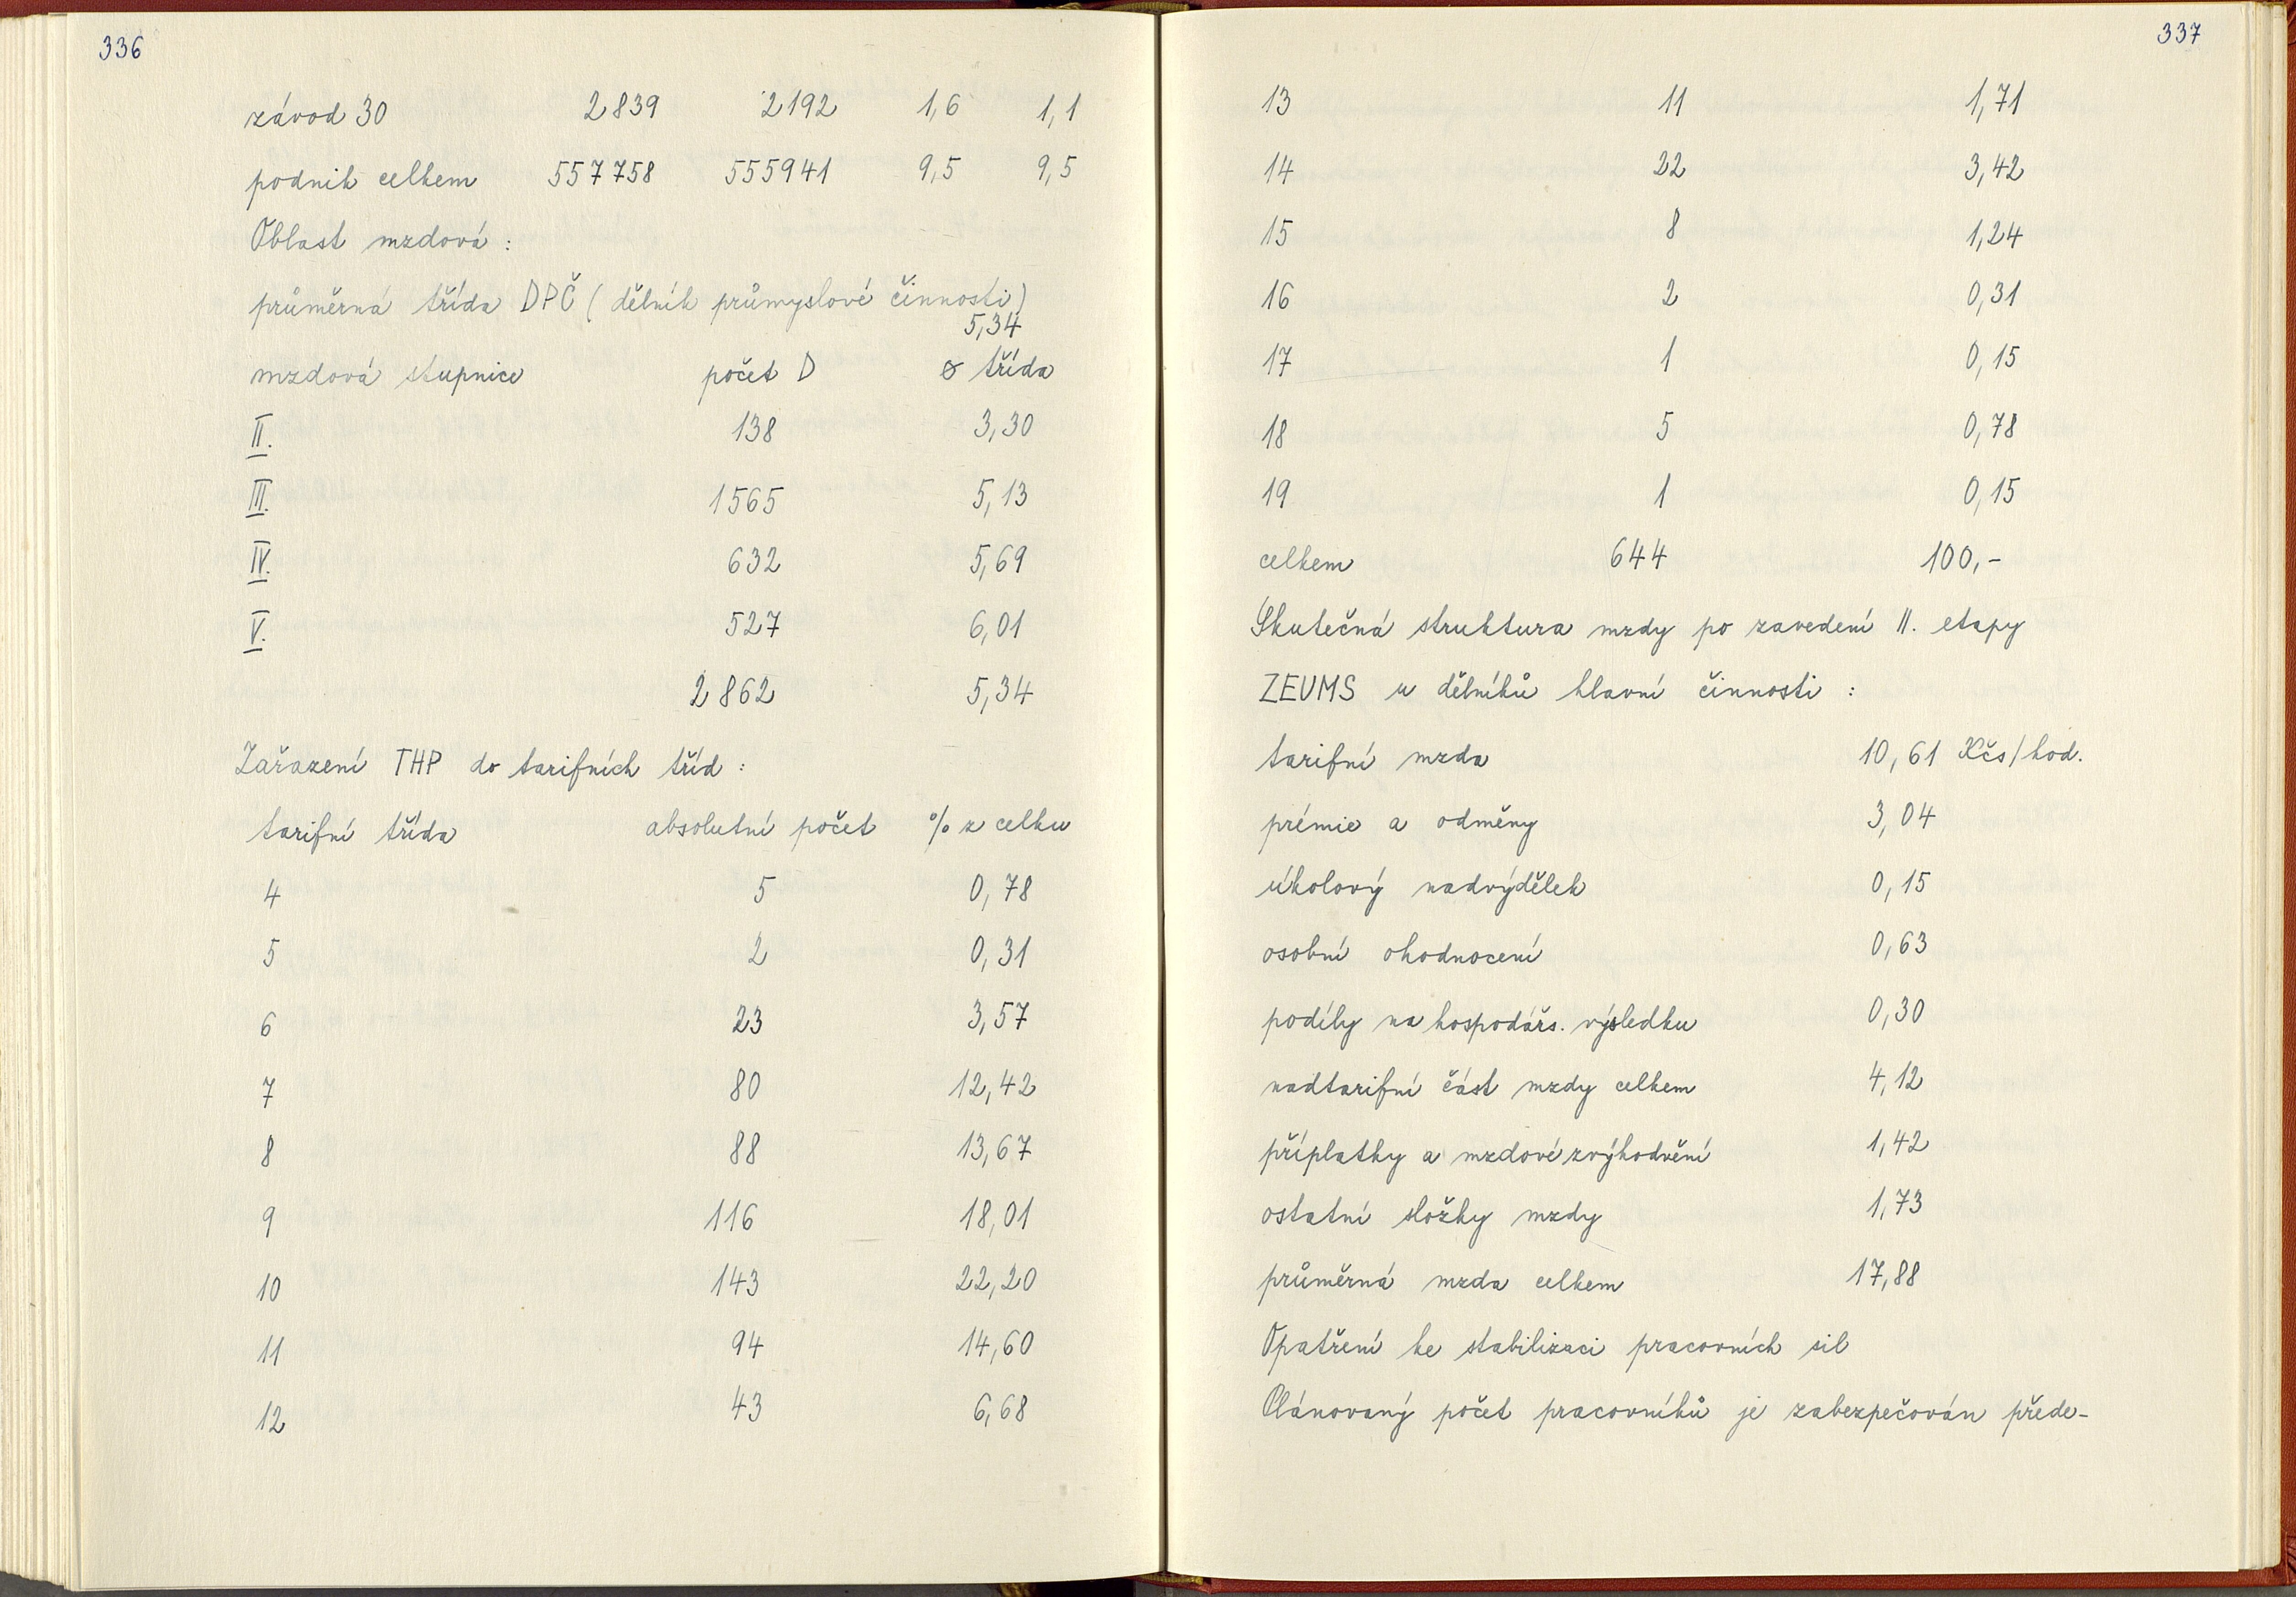 336
závod 30 2839 2192 1,6 1,1
podnik celkem 557758 555941 9,5 9,5
Oblast mzdová :
průměrná třída DPČ ( dělník průmyslové činnosti)
5,34
mzdová stupnice počet D ø třída
II. 138 3,30
III. 1565 5,13
IV. 632 5,69
V. 527 6,01
2862 5,34
Zařazení THP do tarifních tříd :
tarifní třída absolutní počet % z celku
4 5 0,78
5 2 0,31
6 23 3,57
7 80 12,42
8 88 13,67
9 116 18,01
10 143 22,20
11 94 14,60
12 43 6,68
337
13 11 1,71
14 22 3,42
15 8 1,24
16 2 0,31
17 1 0,15
18 5 0,78
19 1 0,15
celkem 644 100,-
Skutečná struktura mzdy po zavedení II. etapy
ZEUMS u dělníků hlavní činnosti :
tarifní mzda 10,61 Kčs/hod.
prémie a odměny 3,04
úkolový nadvýdělek 0,15
osobní ohodnocení 0,63
podíly na hospodářs. výsledku 0,30
nadtarifní část mzdy celkem 4,12
příplatky a mzdové zvýhodnění 1,42
ostatní složky mzdy 1,73
průměrná mzda celkem 17,88
Opatření ke stabilizaci pracovních sil
Plánovaný počet pracovníků je zabezpečován přede-